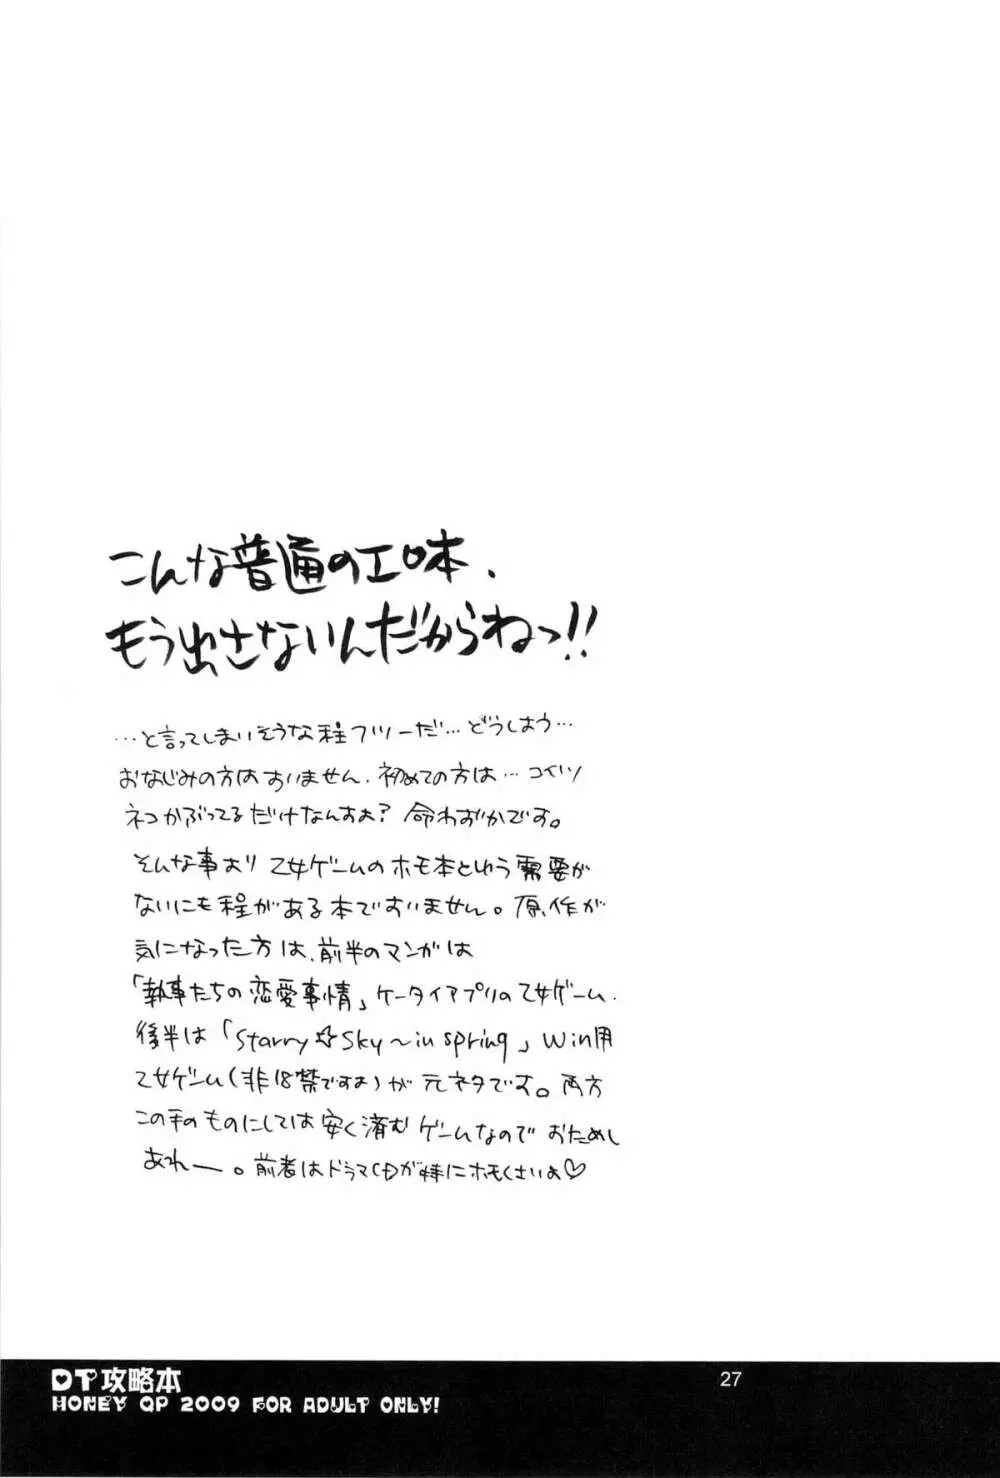 こんな普通のエロ本、
もう出さないんだからねっ!!
…と言ってしまいそうな程フツーだ…どうしよう…
おなじみの方はすいません、初めての方は…コイツ
ネコかぶってるだけなんすよ？命わずかです。
そんな事より乙女ゲームのホモ本という需要が
ないにも程がある本ですいません。原作が
気になった方は、前半のマンガは
「執事たちの恋愛事情」ケータイアプリの乙女ゲーム、
後半は「Starry☆Sky～in spring」Win用
乙女ゲーム(非18禁ですよ)が元ネタです。両方
この手のものにしては安く済むゲームなのでおためし
あれー。前者はドラマCDが特にホモくさいよ♡
DT攻略本
HONEY QP 2009 FOR ADULT ONLY!
27